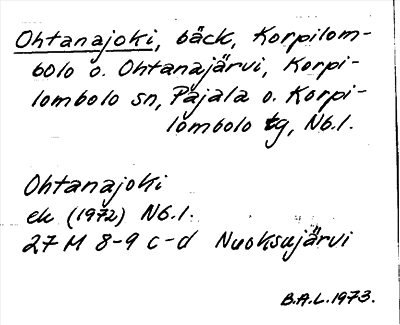 Ohtanajoki, bäck, Korpilom-
bolo o. Ohtanajärvi, Korpi-
lombolo sn, Pajala o. Korpi-
lombolo tg, Nb.l.
Ohtanajoki
ek (1972) Nb.l.
27 M 8-9 c-d Nuoksujärvi
B.A.L. 1973.